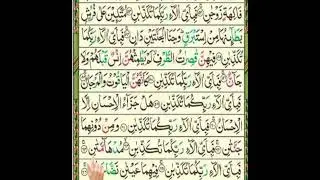 فَاكِهَةٍ زَوْجٰنِ ۝ فَبِاَيِّ اٰلَآءِ رَبِّكُمَا تُكَذِّبٰنِ ۝ مُتَّكِـِٕيْنَ عَلٰى فُرُشٍۭ
بَطَآئِنُهَا مِنْ اِسْتَبْرَقٍ وَجَنَا الْجَنَّتَيْنِ دَانٍ ۝ فَبِاَيِّ اٰلَآءِ رَبِّكُمَا
تُكَذِّبٰنِ ۝ فِيْهِنَّ قٰصِرٰتُ الطَّرْفِ لَمْ يَطْمِثْهُنَّ اِنْسٌ قَبْلَهُمْ وَلَا
جَآنٌّ ۝ فَبِاَيِّ اٰلَآءِ رَبِّكُمَا تُكَذِّبٰنِ ۝ كَاَنَّهُنَّ الْيَاقُوْتُ وَالْمَرْجَانُ ۝
فَبِاَيِّ اٰلَآءِ رَبِّكُمَا تُكَذِّبٰنِ ۝ هَلْ جَزَآءُ الْاِحْسَانِ اِلَّا
الْاِحْسَانُ ۝ فَبِاَيِّ اٰلَآءِ رَبِّكُمَا تُكَذِّبٰنِ ۝ وَمِنْ دُوْنِهِمَا
جَنَّتٰنِ ۝ فَبِاَيِّ اٰلَآءِ رَبِّكُمَا تُكَذِّبٰنِ ۝ مُدْهَآمَّتٰنِ ۝
فَبِاَيِّ اٰلَآءِ رَبِّكُمَا تُكَذِّبٰنِ ۝ فِيْهِمَا عَيْنٰنِ نَضَّاخَتٰنِ